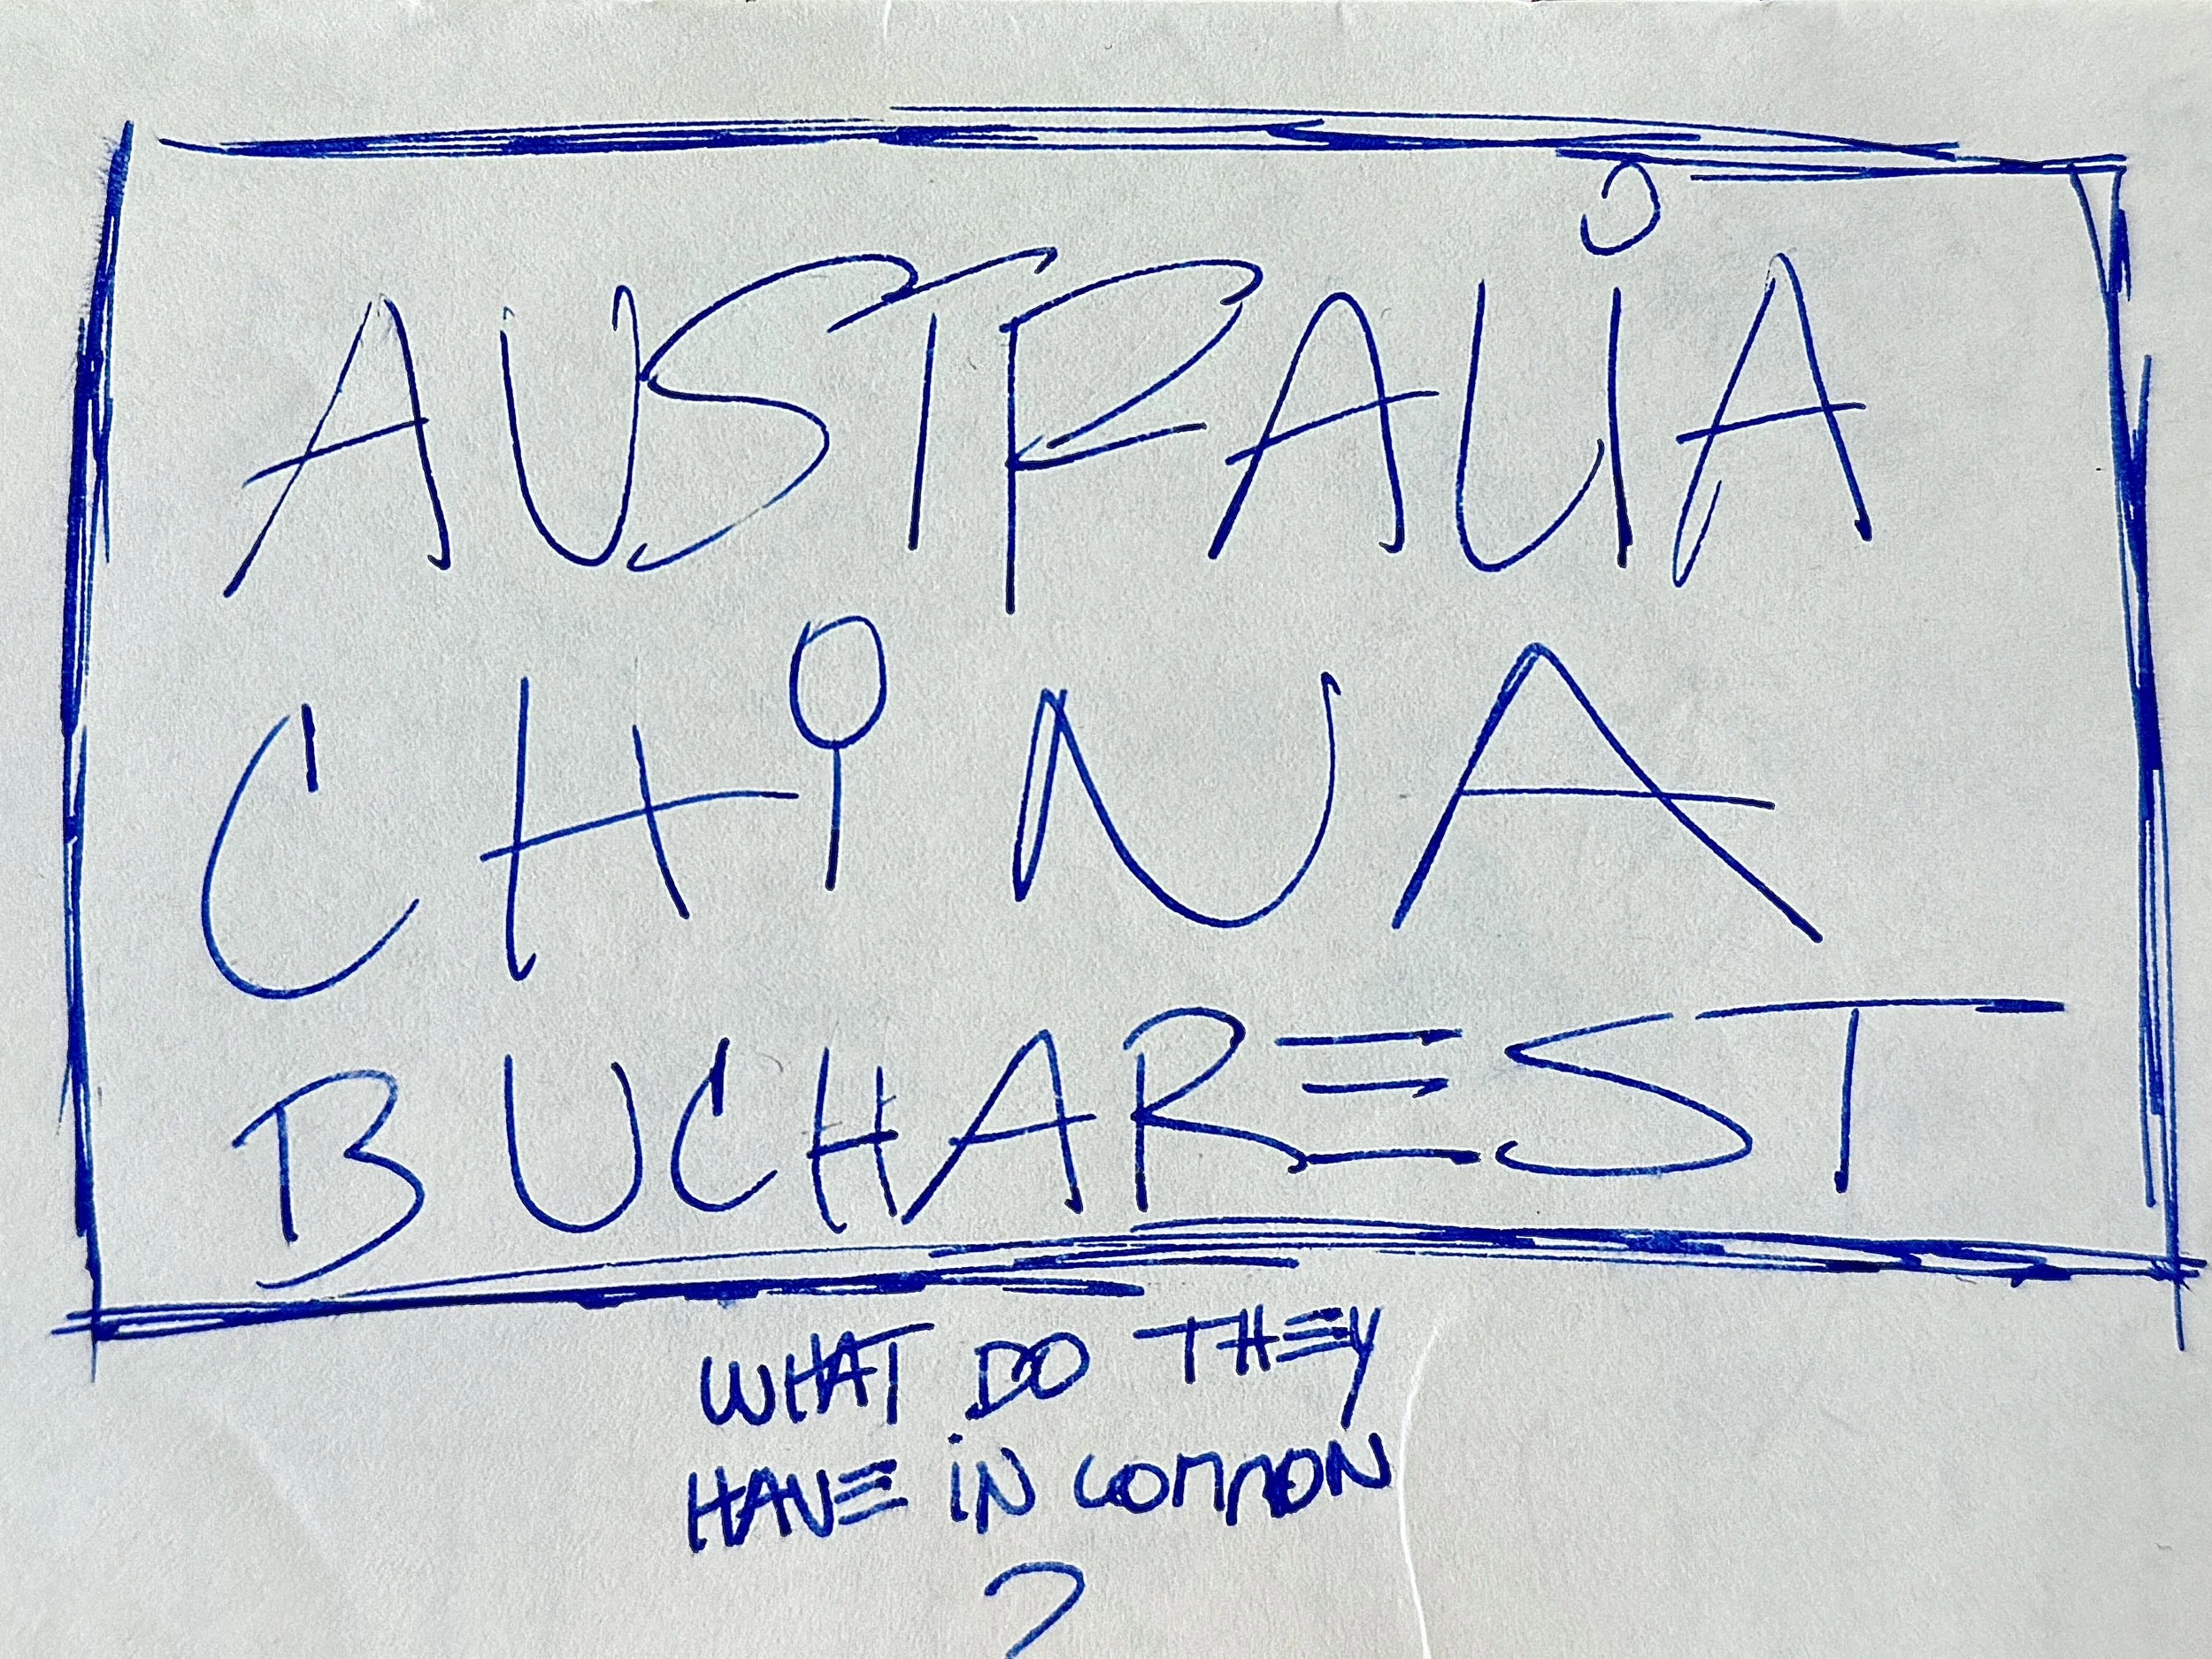 AUSTRALiA
CHiNA
BUCHAREST
WHAT DO THEY
HAVE iN COMMON
?